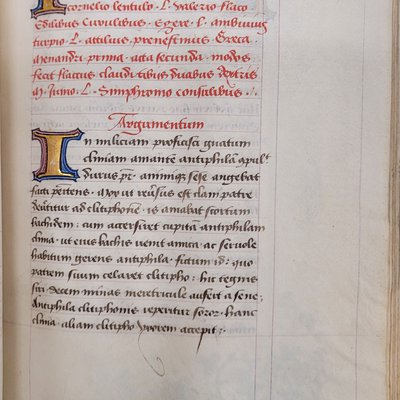 cornelio lentulo · L · Valerio flaco
Edilibus Curulibus · Egere · L · ambiuius
turpio · L · attilius · prenestinus · Greca
Menandri · prima · acta secunda · modos
fecit flaccus claudi tibus duabus dextris
M · Iunio · L · Simphromo consulibus ·
Argumentum
In miliciam proficisci gnatum
cliniam amantē antiphilā
durus pr̄ · animiqȝ sese angebat
facti penitens · Mox ut reūsus est clam patre
deūtitur ad clitiphonē · is amabat scortum
bachidem : cum accerseret cupitā antiphilam
clinia · ut eius bachis uenit amica · ac seruole
habitum gerens antiphila · fictum id : quo
patrem suum celaret clitipho : hic
siri · decem minas meretricule aufert a sene ;
Antiphila clitiphonis reperitur soror · hanc
clinia · aliam clitipho Vxorem accepit ;